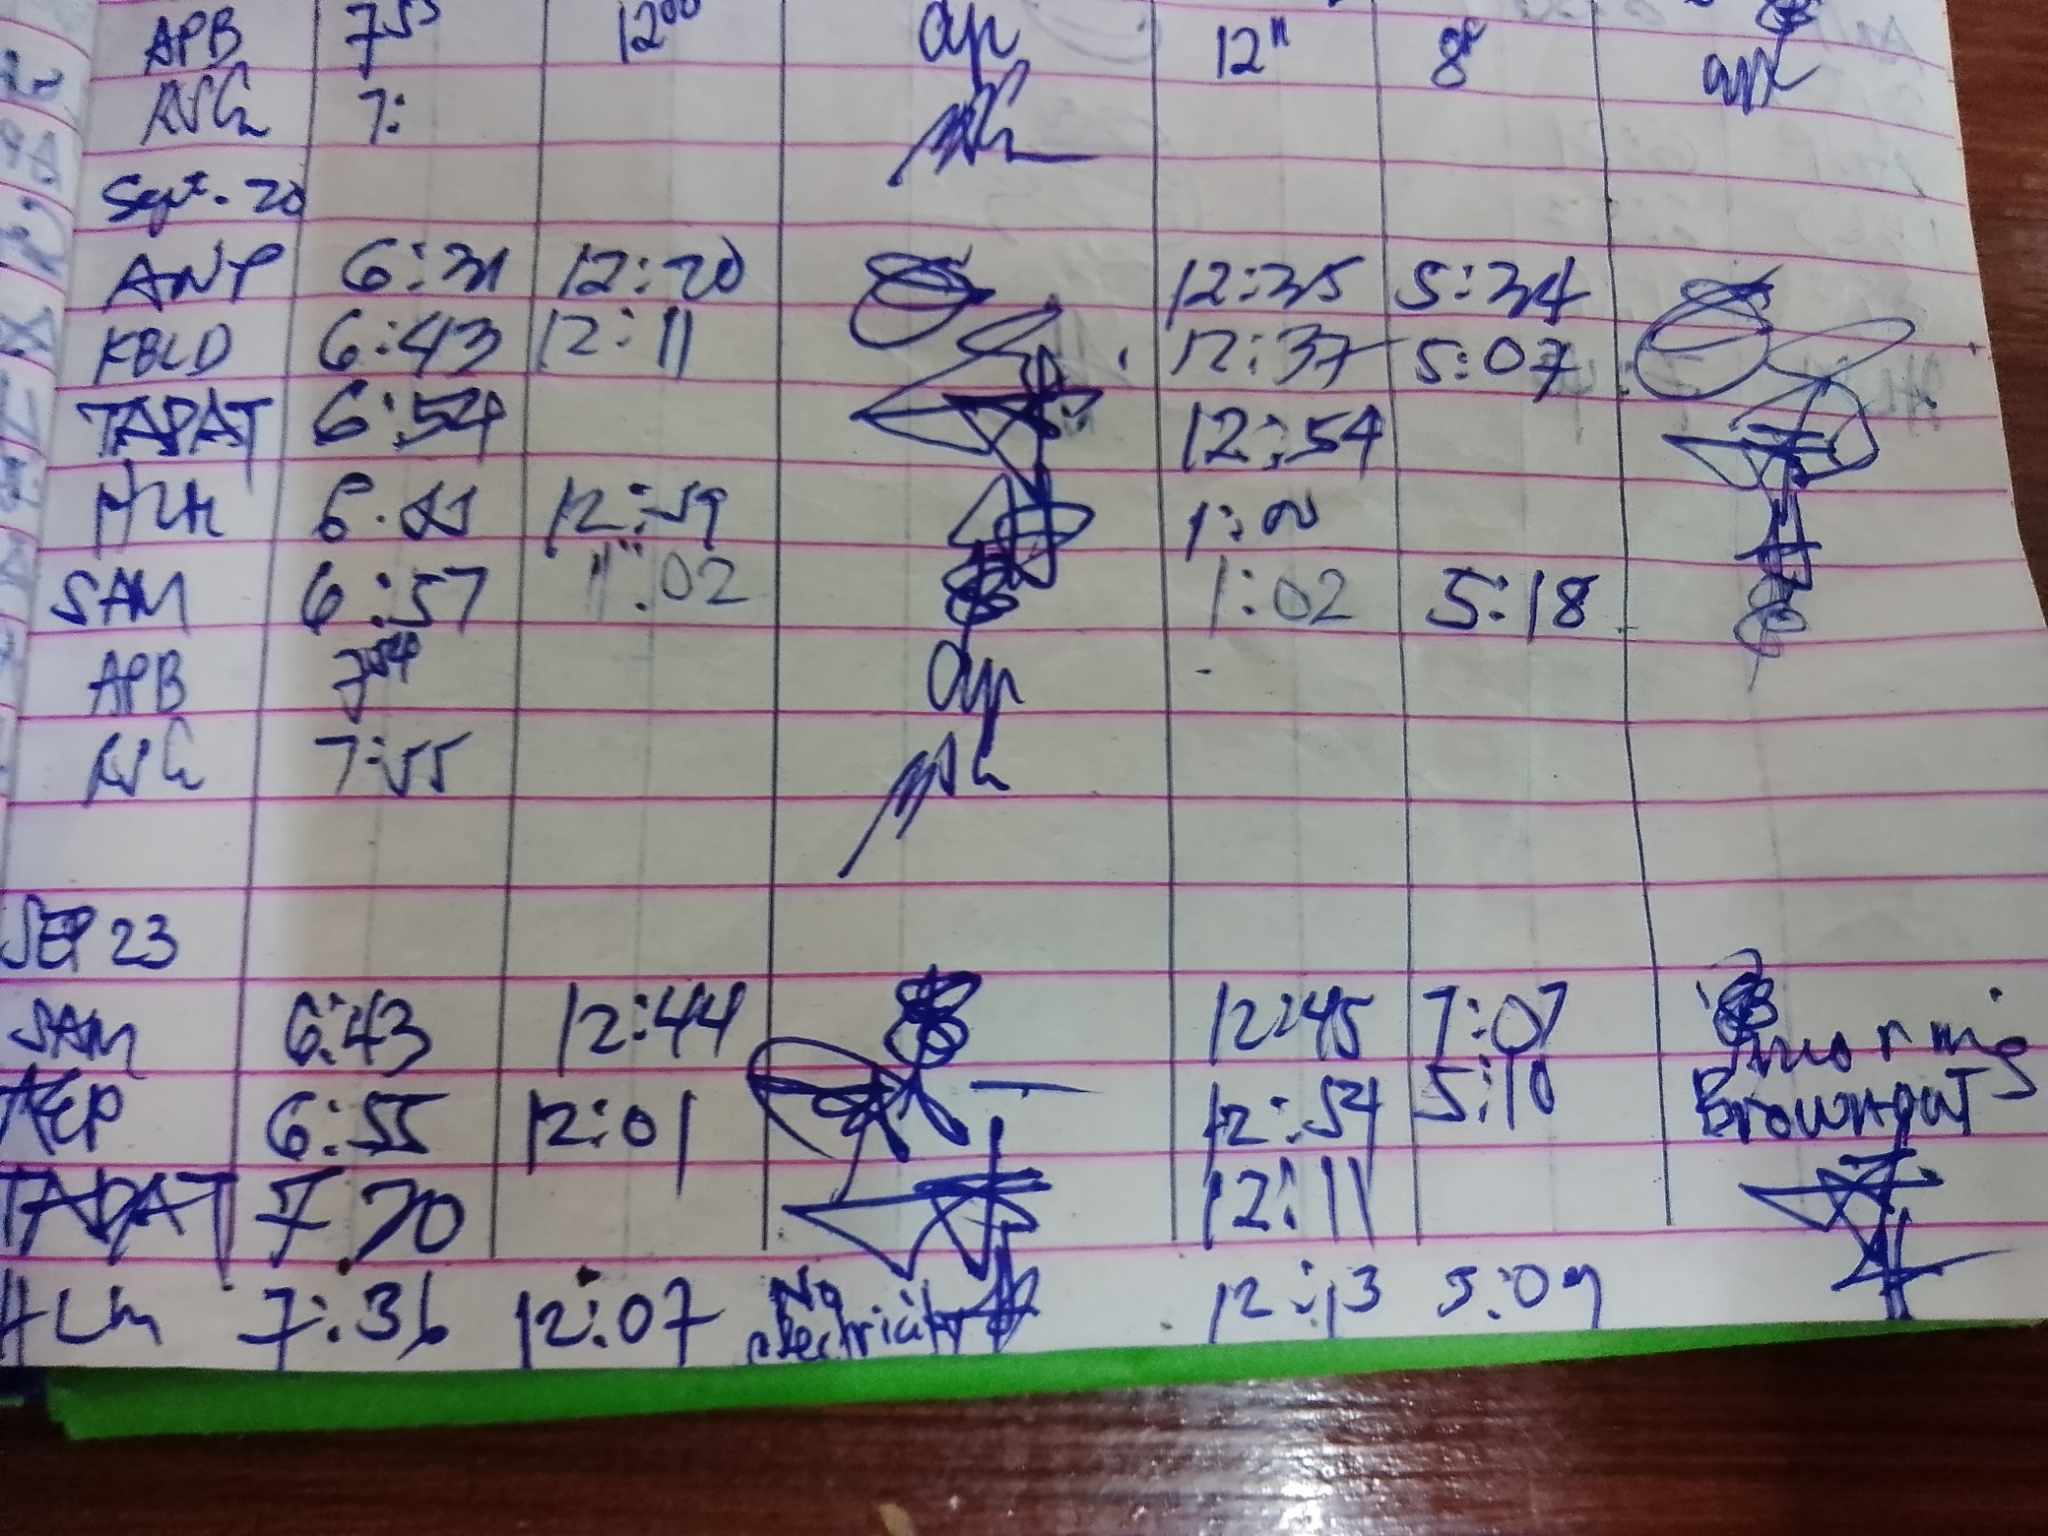 APB 7 55 12 00 ap 12 11 8
7:
Sept. 20
ANP 6:31 12:20 12:35 5:34
KBLD 6:43 12:11 12:37 5:07
TAPAT 6:54 12:54
HLH 12:59 1:00
SAM 6:57 11:02 1:02 5:18
APB 7 54 ap
7:55
SEP 23
SAM 6:43 12:44 12:45 7:07
AEP 6:55 12:01 12:54 5:10 morning Brownout
TAPAT 7.20 12:11
HLM 7:36 12:07 No electricity 12:13 5:09